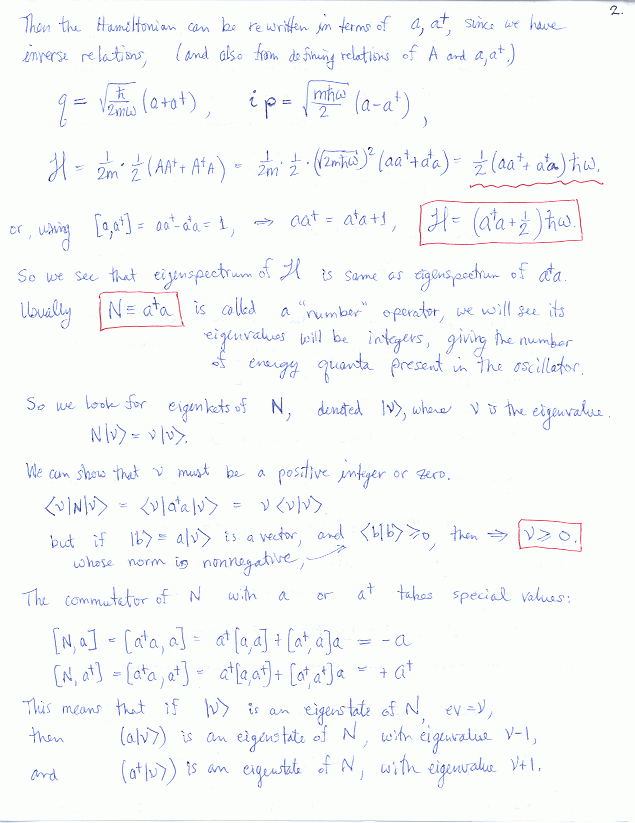 2.
Then the Hamiltonian can be rewritten in terms of a, a†, since we have
inverse relations, (and also from defining relations of A and a, a†.)
q = √(ħ/2mω) (a+a†), i p = √(mħω/2) (a-a†),
H = 1/2m · 1/2 (AA† + A†A) = 1/2m · 1/2 · (√2mħω)² (aa† + a†a) = 1/2 (aa† + a†a) ħω.
or, using [a,a†] = aa† - a†a = 1, ⇒ aa† = a†a + 1, H = (a†a + 1/2) ħω.
So we see that eigenspectrum of H is same as eigenspectrum of a†a.
Usually N ≡ a†a is called a "number" operator, we will see its
eigenvalues will be integers, giving the number
of energy quanta present in the oscillator.
So we look for eigenkets of N, denoted |ν>, where ν is the eigenvalue.
N|ν> = ν|ν>.
We can show that ν must be a positive integer or zero.
<ν|N|ν> = <ν|a†a|ν> = ν<ν|ν>
but if |b> ≡ a|ν> is a vector, and <b|b> ≥ 0, then ⇒ ν ≥ 0.
whose norm is nonnegative,
The commutator of N with a or a† takes special values:
[N,a] = [a†a, a] = a†[a,a] + [a†,a]a = -a
[N,a†] = [a†a, a†] = a†[a,a†] + [a†,a†]a = +a†
This means that if |ν> is an eigenstate of N, ev = ν,
then (a|ν>) is an eigenstate of N, with eigenvalue ν-1,
and (a†|ν>) is an eigenstate of N, with eigenvalue ν+1.